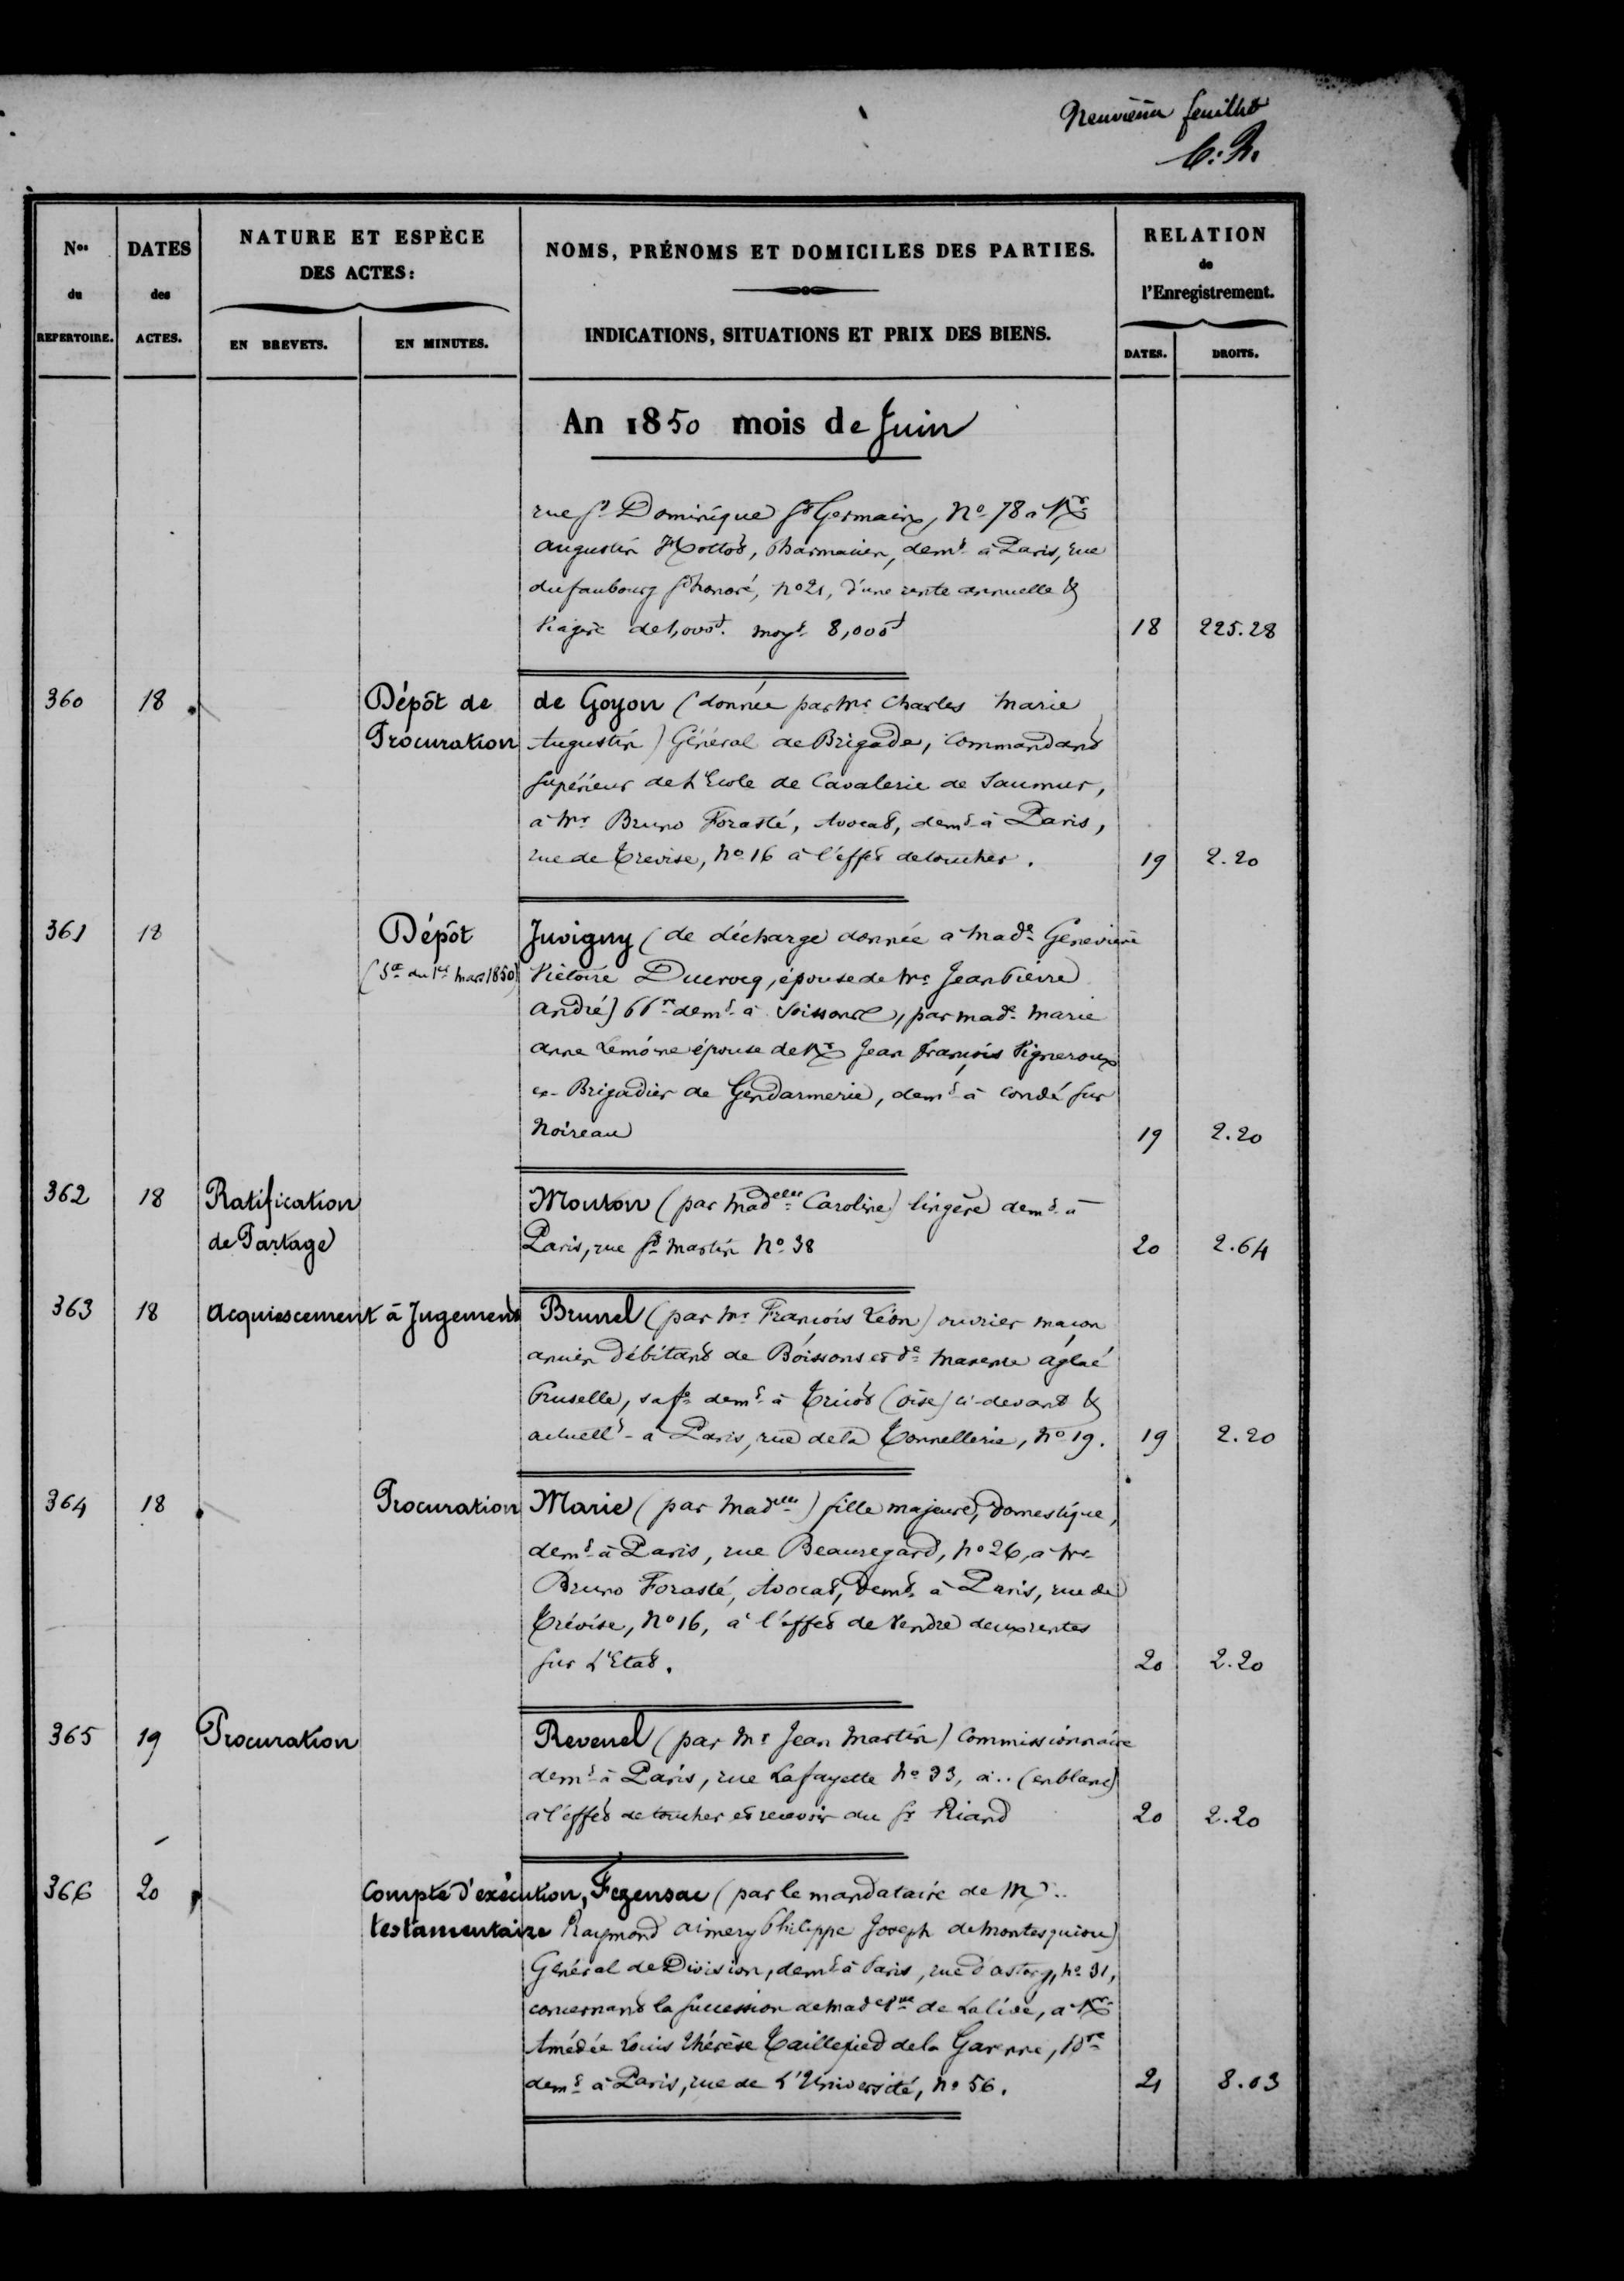 Neuvième feuillet
C. R.
Nos du REPERTOIRE.
DATES des ACTES.
NATURE ET ESPÈCE DES ACTES:
EN BREVETS.
EN MINUTES.
NOMS, PRÉNOMS ET DOMICILES DES PARTIES.
INDICATIONS, SITUATIONS ET PRIX DES BIENS.
RELATION de l'Enregistrement.
DATES.
DROITS.
An 1850 mois de Juin
rue St Dominique St Germain, No 78 à Mr
Augustin Hottot, Pharmacien, demt à Paris, rue
du faubourg St honoré, no 21, d'une rente annuelle &
Viagère de 1,000f. moyt 8,000f 18 225.28
360 18 Dépôt de de Goyon (donnée par Mr Charles Marie
Procuration Augustin) Général de Brigade, Commandant
Supérieur de L'Ecole de Cavalerie de Saumur,
à Mr Bruno Forasté, Avocat, demt à Paris,
rue de Trevise, No 16 à l'effet de toucher. 19 2.20
361 18 Dépôt Juvigny (de décharge donnée à Made Geneviève
(Se du 1er Mars 1850) Victoire Ducrocq, épouse de Mr Jean Pierre
André) demt à Soissons, par Made Marie
Anne Lemoine épouse de Mr Jean François Vigneroux
ex-Brigadier de Gendarmerie, demt à Condé sur
Noireau 19 2.20
362 18 Ratification Mouton (par Madelle Caroline) lingère demt à
de Partage Paris, rue St Martin No 38 20 2.64
363 18 Acquiescement à Jugement Brunel (par Mr François Léon) ouvrier maçon
ancien Débitant de Boissons et de Maxence Aglaé
Pruselle, sa fe demt à Tricot (Oise) ci-devant &
actuellt à Paris, rue de la Tonnellerie, No 19. 19 2.20
364 18 Procuration Marie (par Madelle) fille majeure, domestique,
demt à Paris, rue Beauregard, No 26, à Mr
Bruno Forasté, Avocat, demt à Paris, rue de
Trévise, No 16, à l'effet de Vendre deux rentes
sur L'Etat. 20 2.20
365 19 Procuration Revenel (par Mr Jean Martin) Commissionnaire
demt à Paris, rue Lafayette No 33, à.. (en blanc)
à l'effet de toucher et recevoir du Sr Riand 20 2.20
366 20 Compte d'exécution, Fezensac (par le mandataire de Mr..
testamentaire Raymond Aimery Philippe Joseph de Montesquiou)
Général de Division, demt à Paris, rue d'Astorg, No 31,
concernant la Succession de Made de Lalive, à Mr
Amédée Louis Thérèse Taillepied de la Garenne, Pre
demt à Paris, rue de L'Université, No 56. 21 8.03